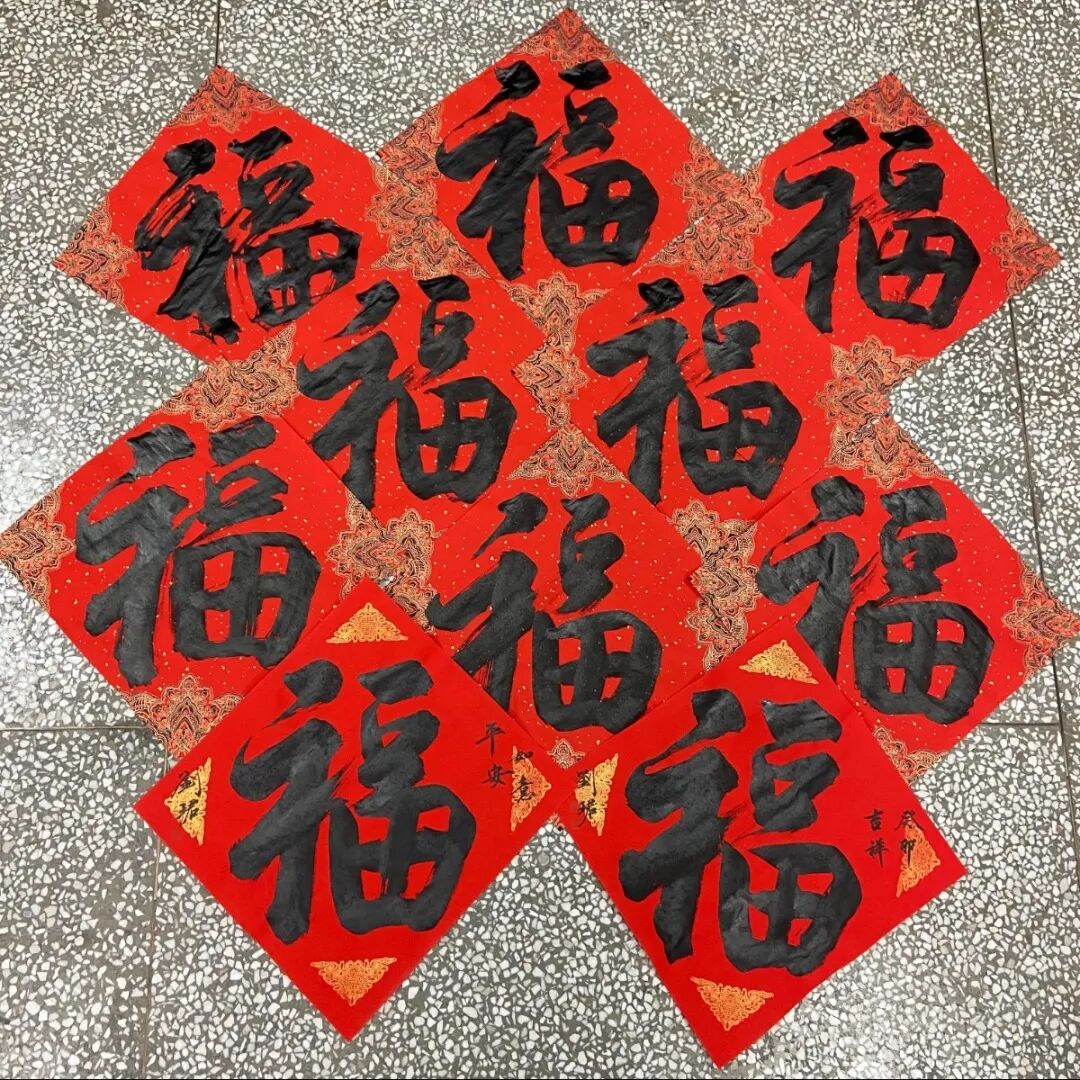 福
福
福
福
福
福
福
福
如意
平安
福
劉
癸卯
吉祥
福
劉